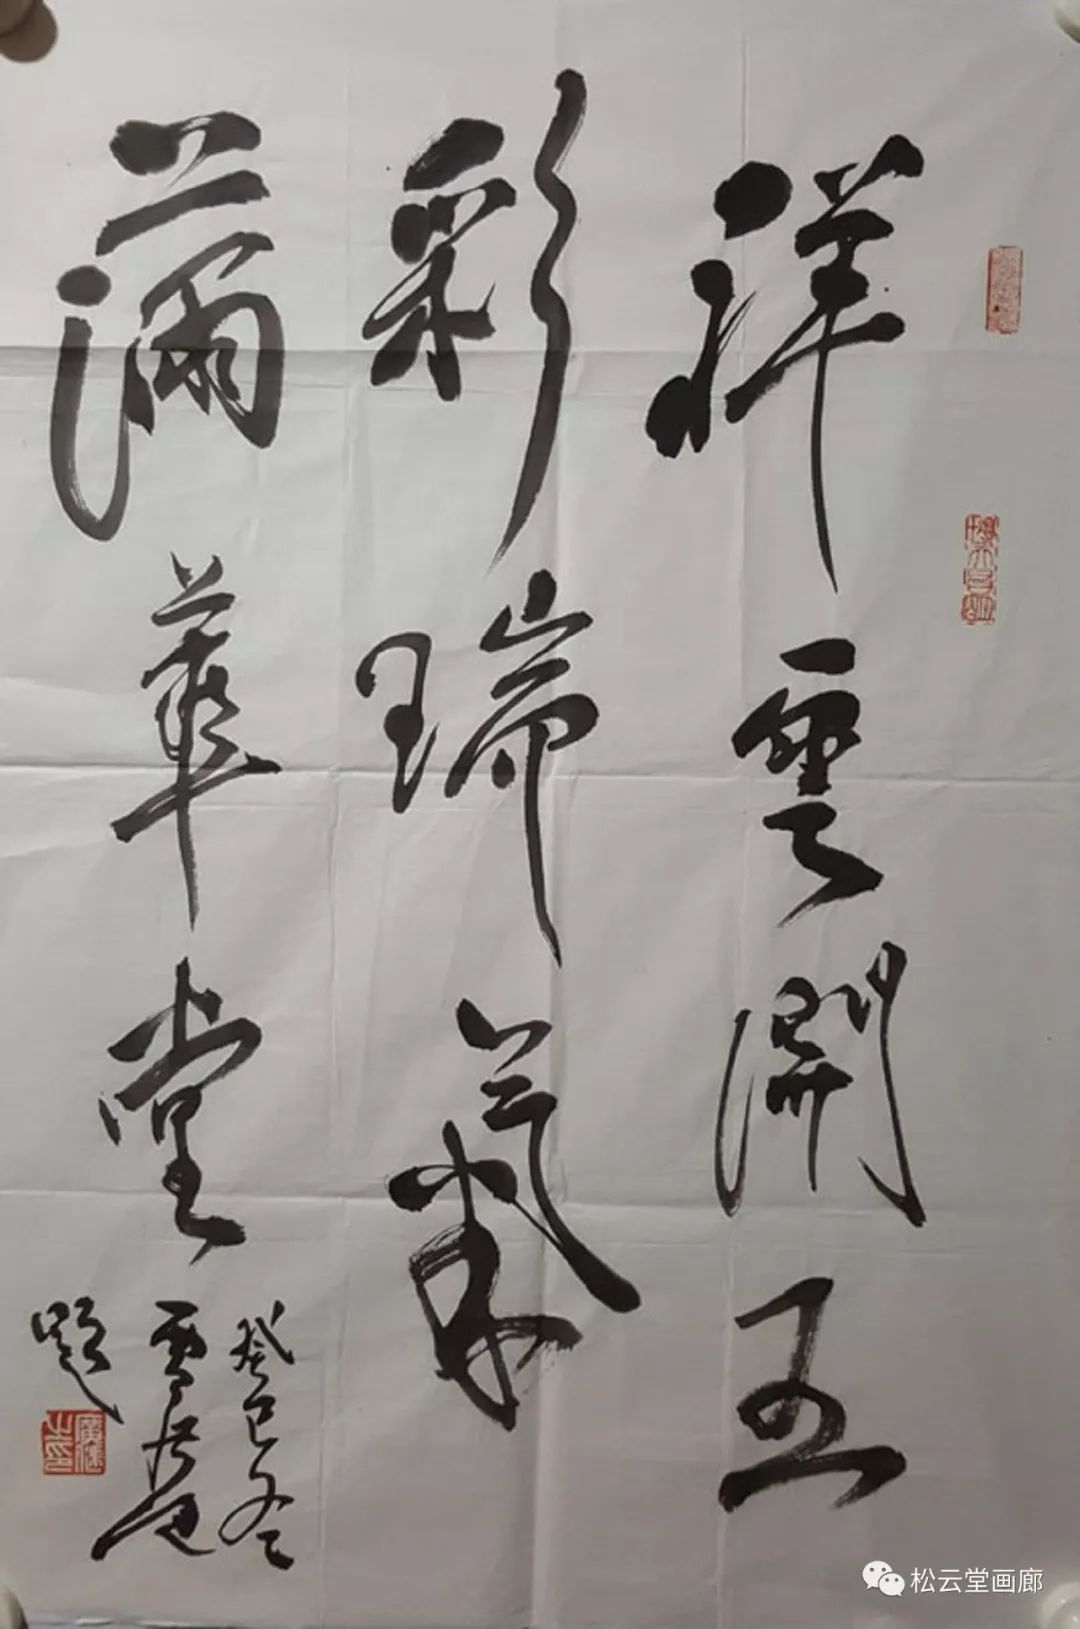 祥雲開五
彩瑞氣
滿華堂
癸巳冬
題
松云堂画廊